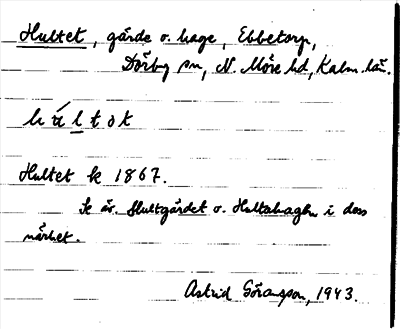 Hultet, gärde o. hage, Ebbetorp,
Dörby sn, N. Möre hd, Kalm. län.
Hultet k 1867.
Se äv. Hultgärdet o. Hultahagen i dess
närhet.
Astrid Göransson, 1943.